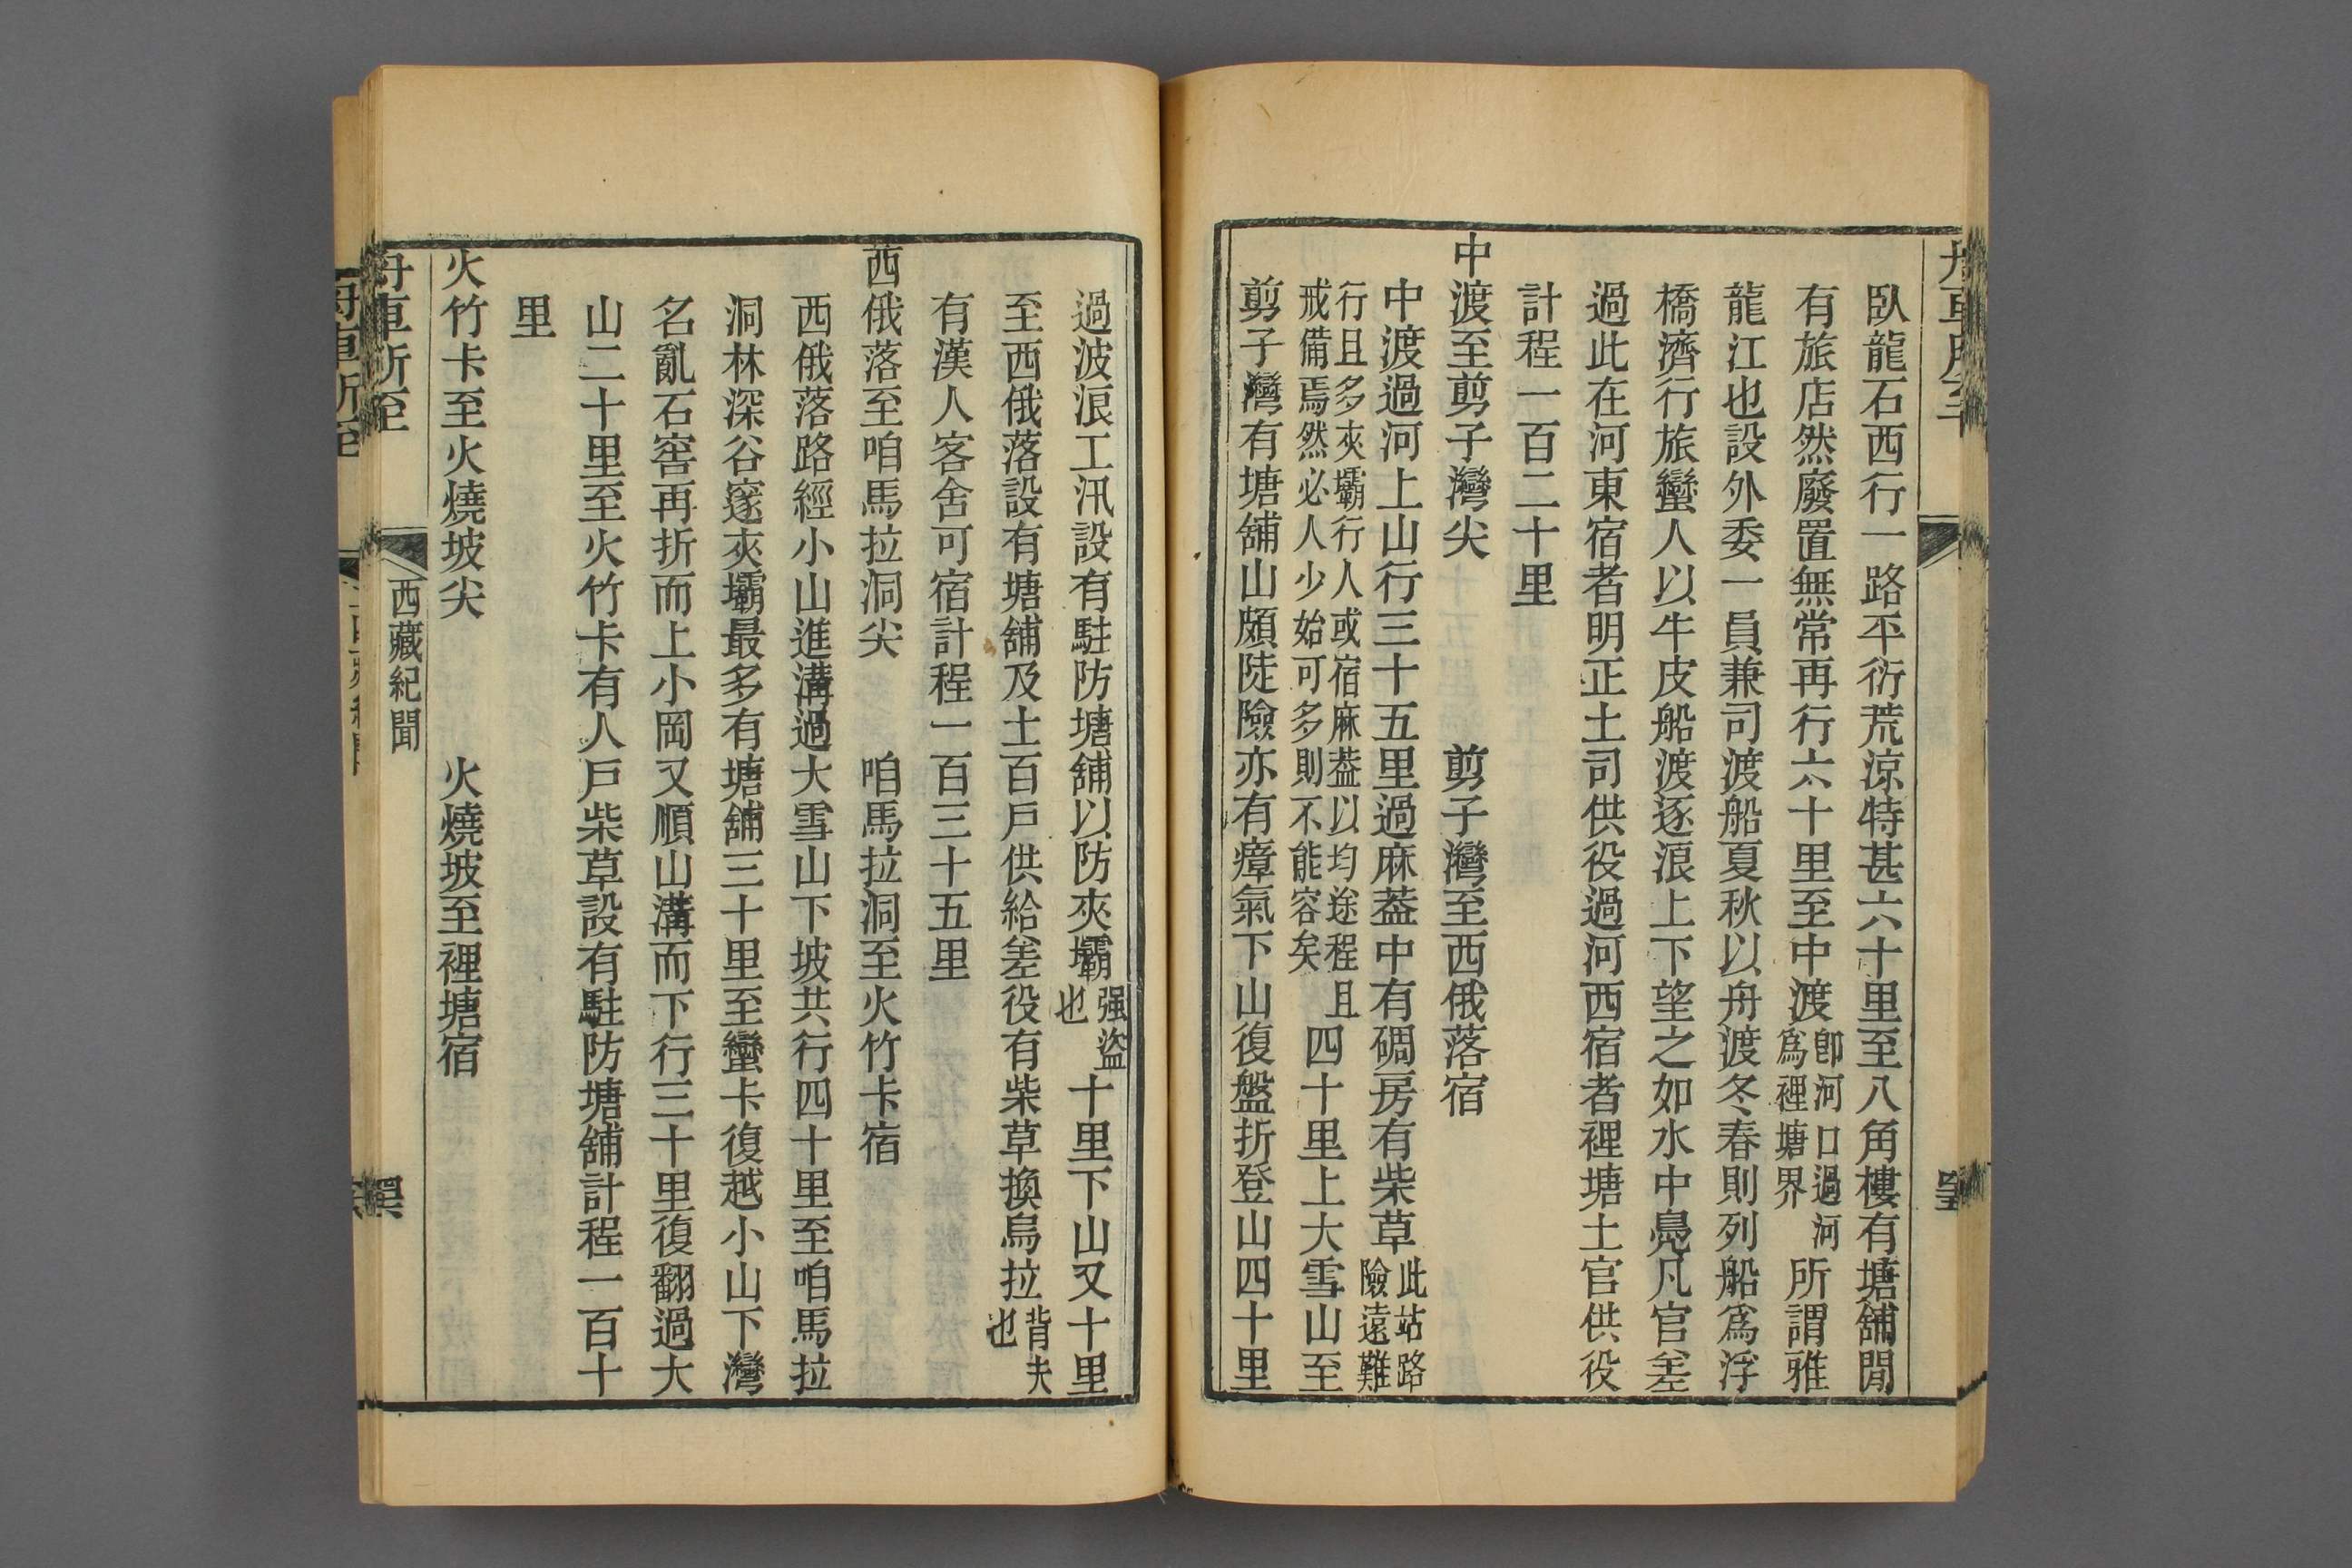 臥龍石西行一路平衍荒涼特甚六十里至八角樓有塘舖閒
有旅店然廢置無常再行六十里至中渡卽河口過河爲裡塘界所謂雅
龍江也設外委一員兼司渡船夏秋以舟渡冬春則列船爲浮
橋濟行旅蠻人以牛皮船渡逐浪上下望之如水中鳧凡官差
過此在河東宿者明正土司供役過河西宿者裡塘土官供役
計程一百二十里
中渡至剪子灣尖 剪子灣至西俄落宿
中渡過河上山行三十五里過麻葢中有碉房有柴草此站路險遠難
行且多夾壩行人或宿麻葢以均途程且戒備焉然必人少始可多則不能容矣四十里上大雪山至
剪子灣有塘舖山頗陡險亦有瘴氣下山復盤折登山四十里
過波浪工汛設有駐防塘舖以防夾壩强盜也十里下山又十里
至西俄落設有塘舖及土百戶供給差役有柴草換烏拉背夫也
有漢人客舍可宿計程一百三十五里
西俄落至咱馬拉洞尖 咱馬拉洞至火竹卡宿
西俄落路經小山進溝過大雪山下坡共行四十里至咱馬拉
洞林深谷邃夾壩最多有塘舖三十里至蠻卡復越小山下灣
名亂石窖再折而上小岡又順山溝而下行三十里復翻過大
山二十里至火竹卡有人戶柴草設有駐防塘舖計程一百十
里
火竹卡至火燒坡尖 火燒坡至裡塘宿
舟車所至
西藏紀聞